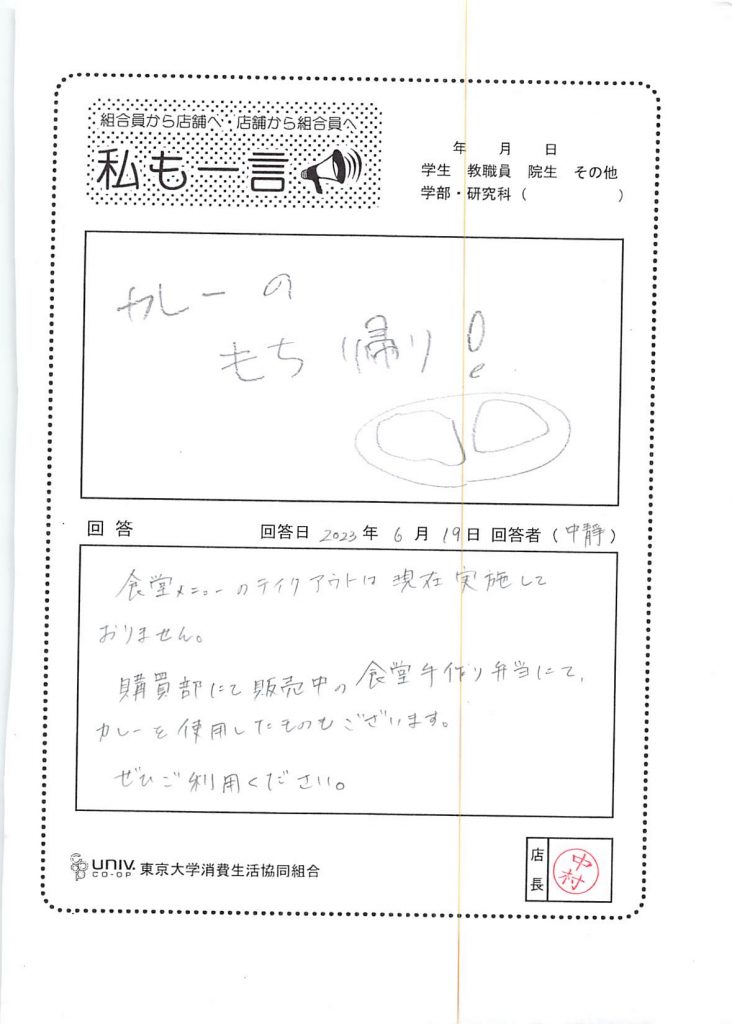 組合員から店舗へ・店舗から組合員へ
私も一言
年 月 日
学生 教職員 院生 その他
学部・研究科（ ）
カレーの
もち帰り!
回答 回答日 2023年 6月 19日 回答者（中静）
食堂メニューのテイクアウトは現在実施して
おりません。
購買部にて販売中の食堂手作り弁当にて、
カレーを使用したものもございます。
ぜひご利用ください。
UNIV. CO-OP 東京大学消費生活協同組合
店長
中村